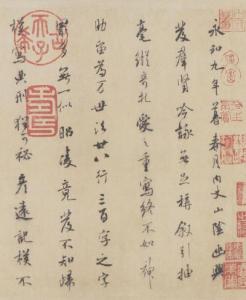 永和九年暮春月内史山陰幽興
發羣賢吟詠無足稱叙引抽
毫縱奇札愛之重寫終不如神
助留為万世法廿八行三百字之字
最多無一似昭陵竟發不知歸
模寫典刑猶可秘彦遠記模不
古希天子